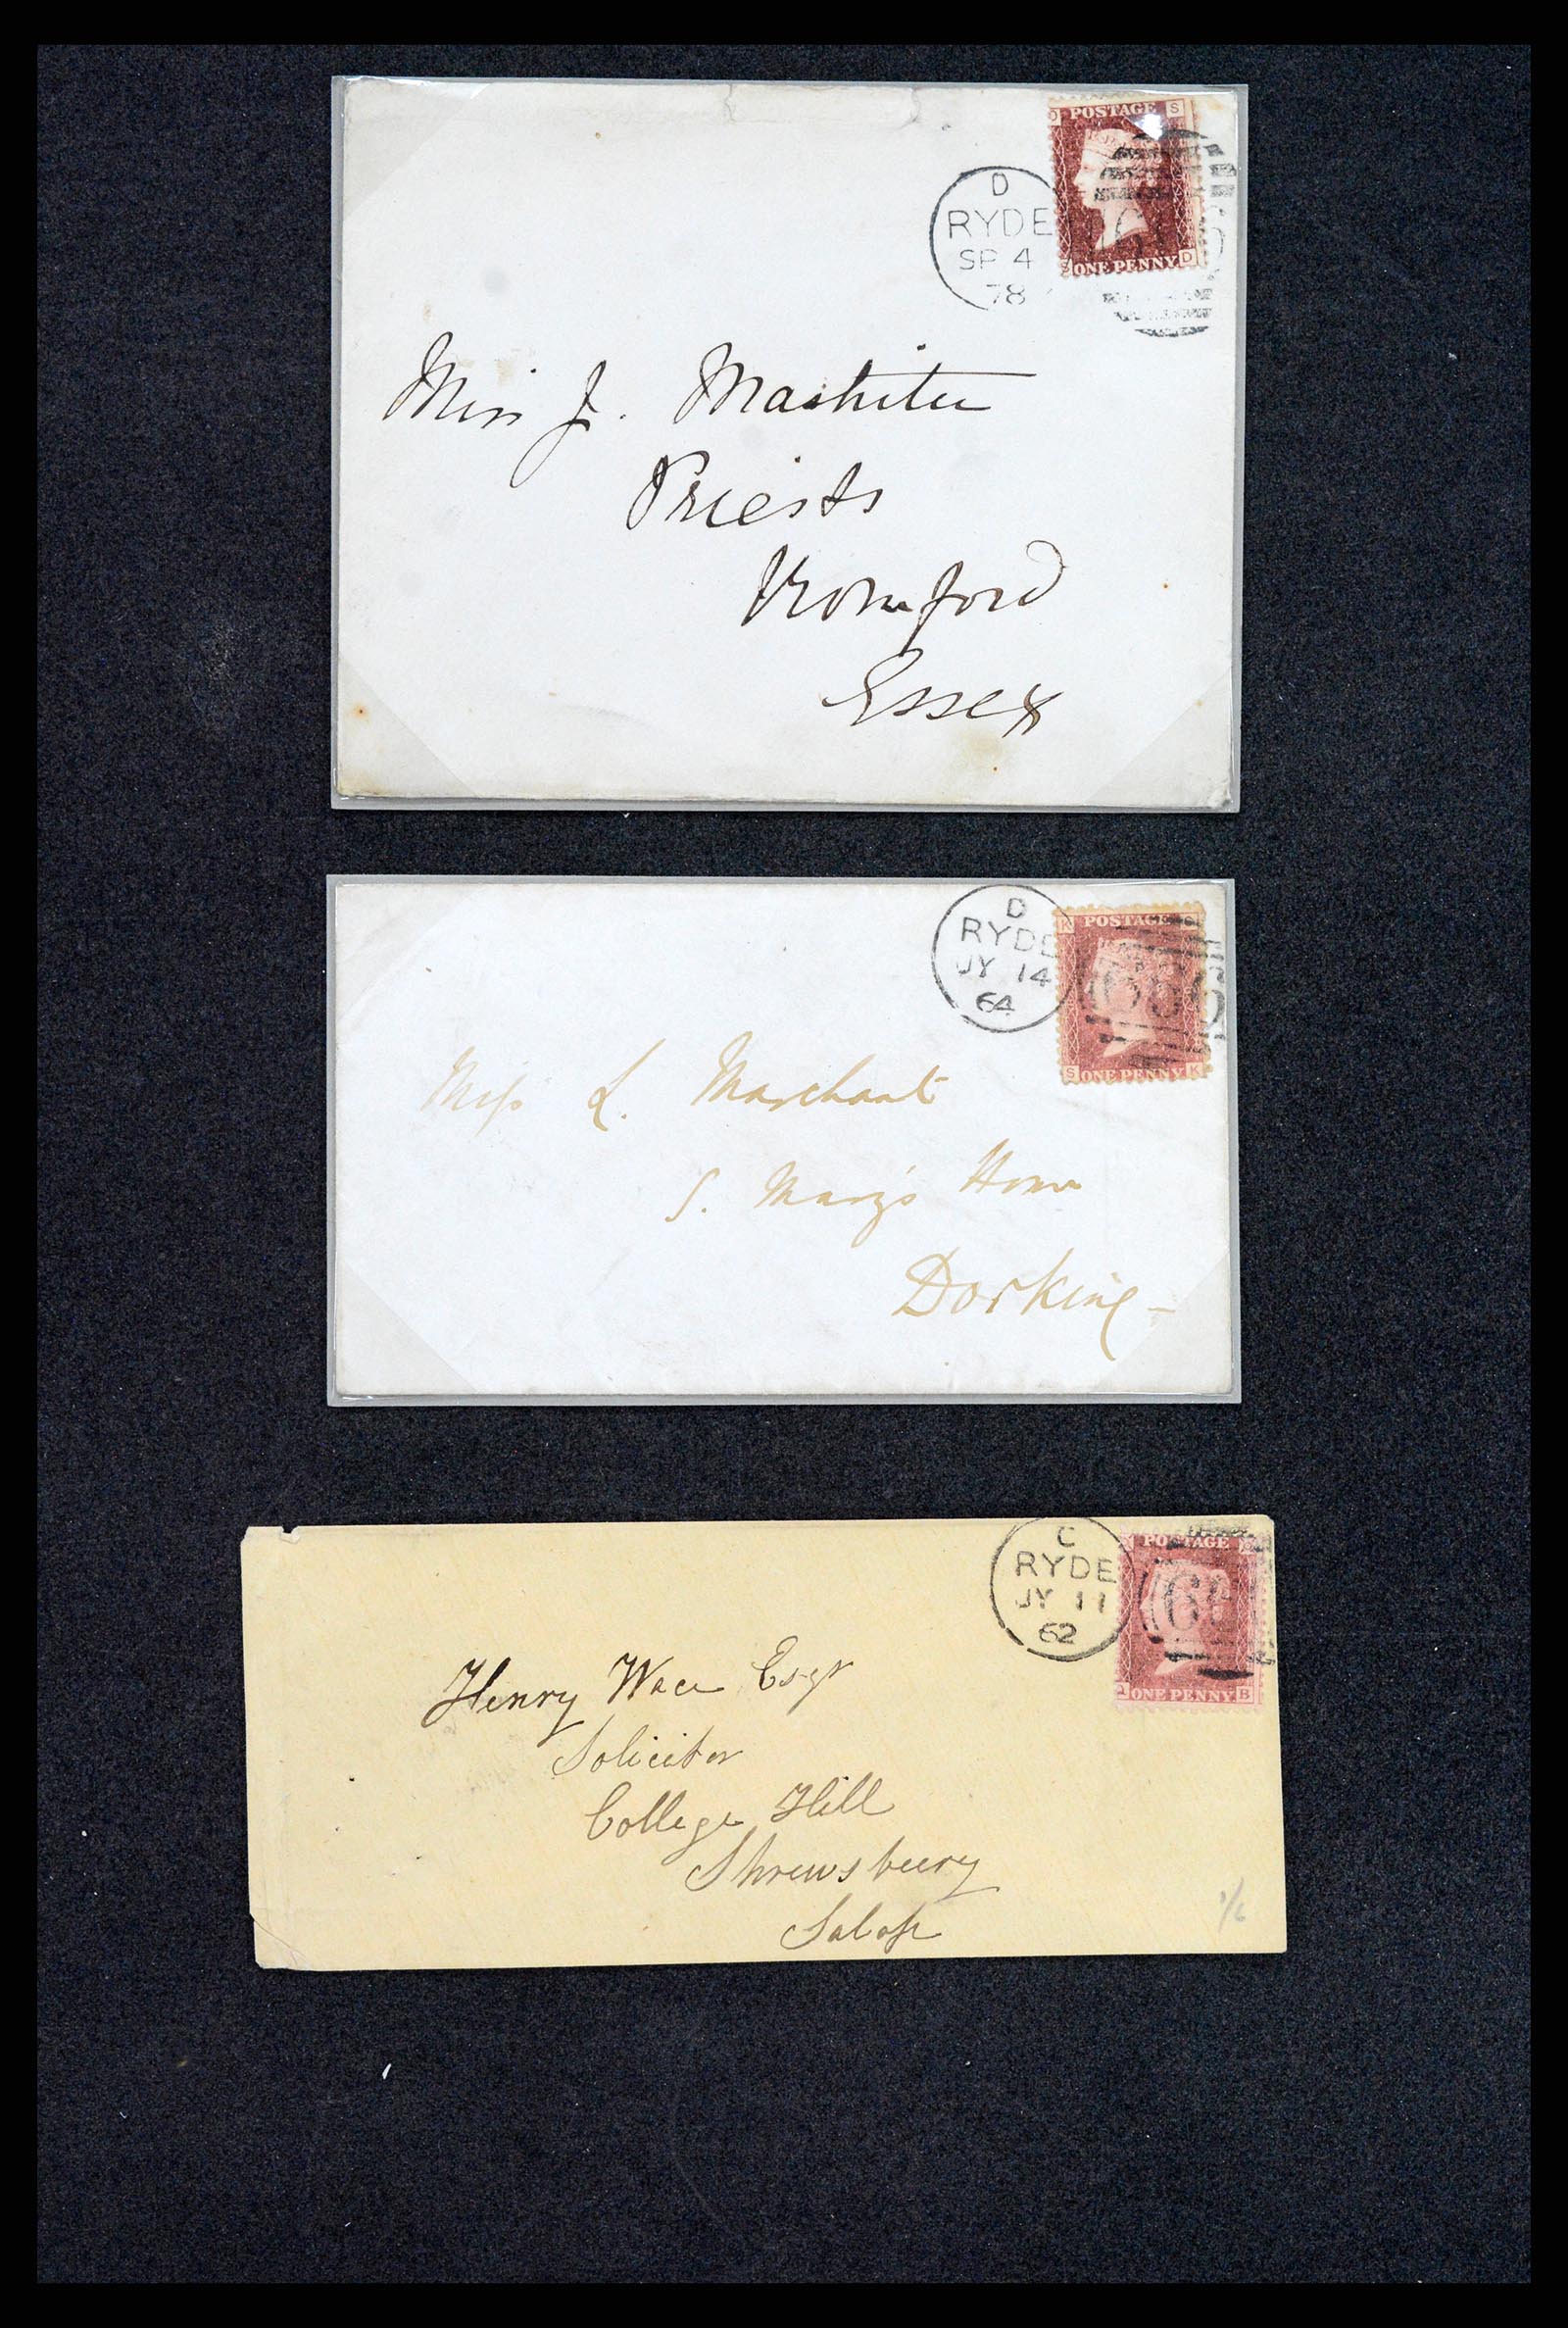 D
RYDE
SP 4
78
POSTAGE S
ONE PENNY D
Miss J. Mashiter
Priests
Romford
Essex
D
RYDE
JY 14
64
POSTAGE
S ONE PENNY K
Miss L. Marchant
S. Mary's Home
Dorking
C
RYDE
JY 11
62
POSTAGE
ONE PENNY B
Henry Wace Esqr
Solicitor
College Hill
Shrewsbury
Salop
1/6